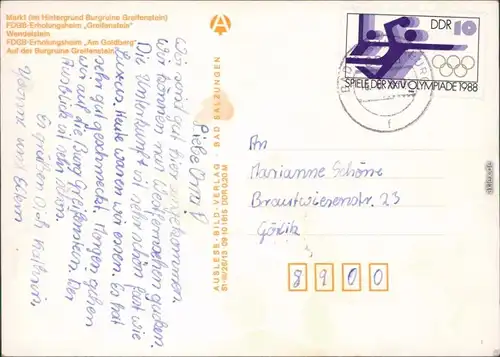 Markt (im Hintergrund Burgruine Greifenstein)
FDGB-Erholungsheim „Greifenstein"
Wendelstein
FDGB-Erholungsheim „Am Goldberg"
Auf der Burgruine Greifenstein
A
AUSLESE-BILD-VERLAG · BAD SALZUNGEN
01-III/26/13 09 10 1615 DDR 0,20 M
DDR 10
SPIELE DER XXIV. OLYMPIADE 1988
Liebe Oma!
Wir sind gut hier angekommen.
Wir können nun Westfernsehen gucken.
Die Unterkunft ist sehr schön fast wie
Luxus. Heute waren wir essen. Es hat
sehr gut geschmeckt. Morgen gehen
wir auf die Burg Greifenstein. Der
Ausblick ist schön.
Es grüßen Dich Kathrin,
und Eltern
An
Marianne Schöne
Brautwiesenstr. 23
Görlitz
8900